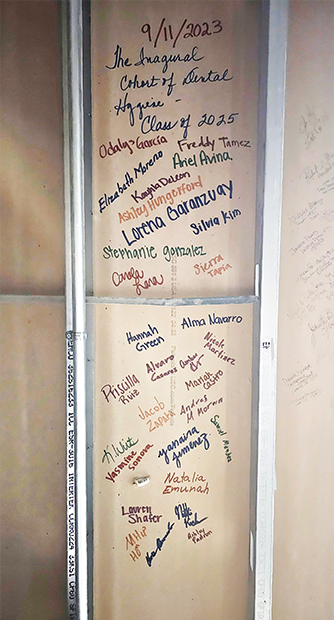 9/11/2023
The Inagural
Cohort of Dental
Hygiene -
Class of 2025
Odalys Garcia
Freddy Tamez
Elizabeth Moreno
Ariel Avina
Kayla DeLeon
Ashley Hungerford
Lorena Garanzuay
Silvia Kim
Stephanie Gonzalez
Carola
Luna
Sierra
Tapia
Hannah
Green
Alma Navarro
Nicole
Martinez
Priscilla
Ruiz
Alvaro
Casares
Mariah
Castro
Jacob
Zapata
Andres
M Moreno
Samuel
K. White
Yasmine
Sonora
Yanaira
Jimenez
Natalia
Emunah
Lauren
Shafer
Ashley
Padron